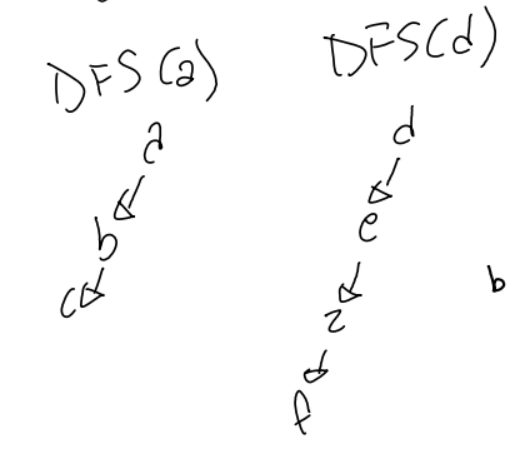 DFS(a)
a
b
c
DFS(d)
d
e
z
f
b